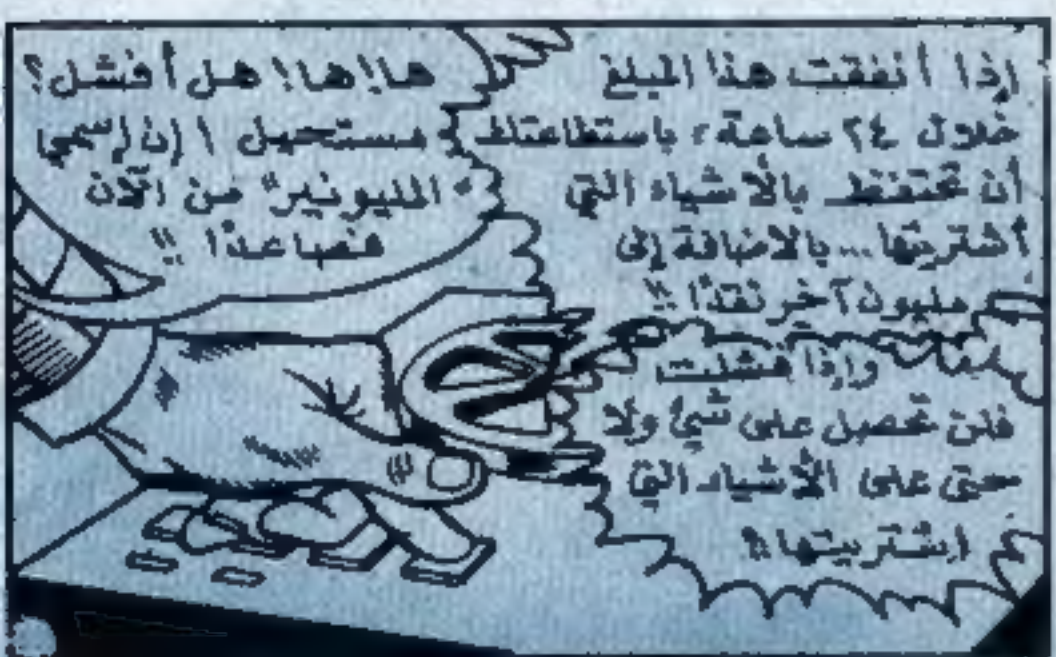 إذا أنفقت هذا المبلغ
خلال ٢٤ ساعة، باستطاعتك
أن تحتفظ بالأشياء التي
أشتريتها... بالاضافة إلى
مليون آخر نقدًا !!
وإذا فشلت
فلن تحصل على شيئ ولا
حتى على الأشياء التي
إشتريتها !!
ها!ها! هل أفشل؟
مستحيل ! إن إسمي
"المليونير" من الآن
فصاعدًا !!